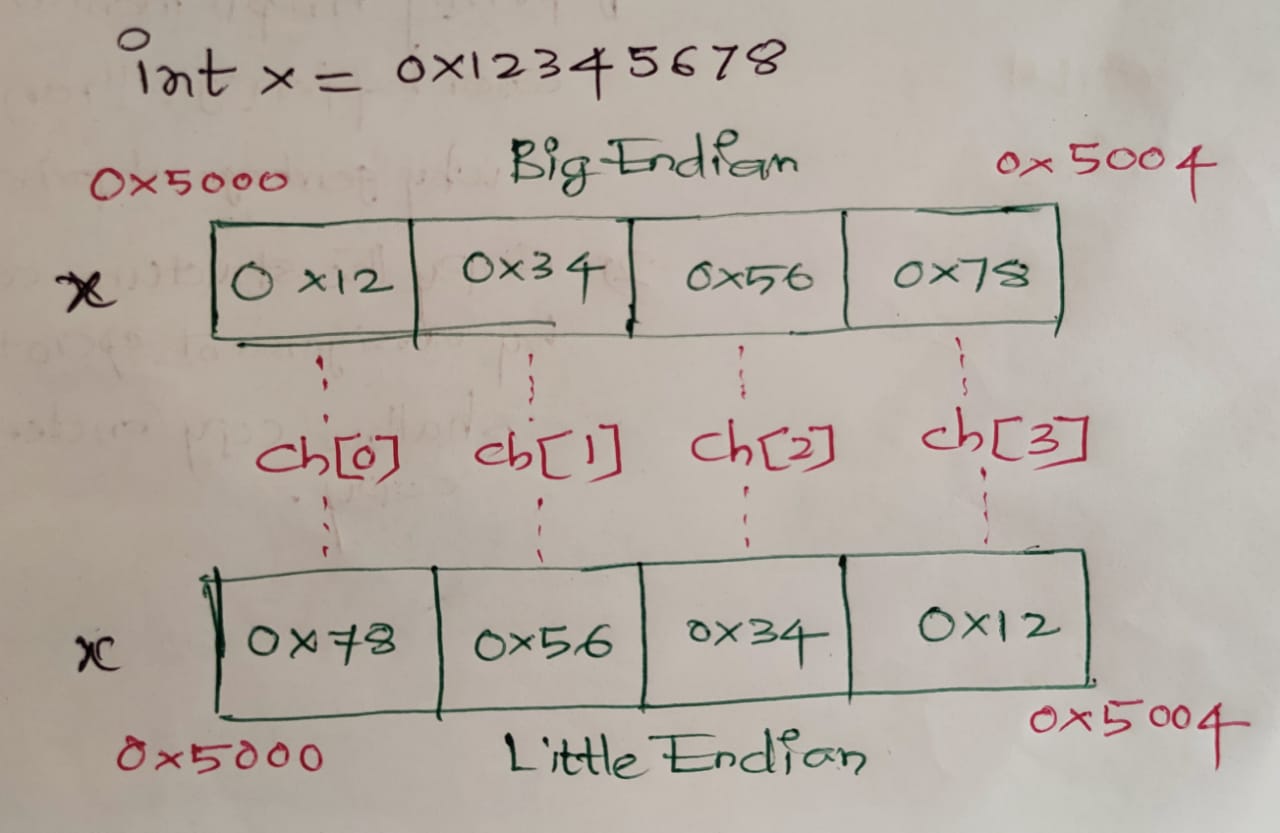 int x = 0x12345678
Big Endian
0x5000 0x5004
x 0x12 0x34 0x56 0x78
ch[0] ch[1] ch[2] ch[3]
x 0x78 0x56 0x34 0x12
0x5000 Little Endian 0x5004